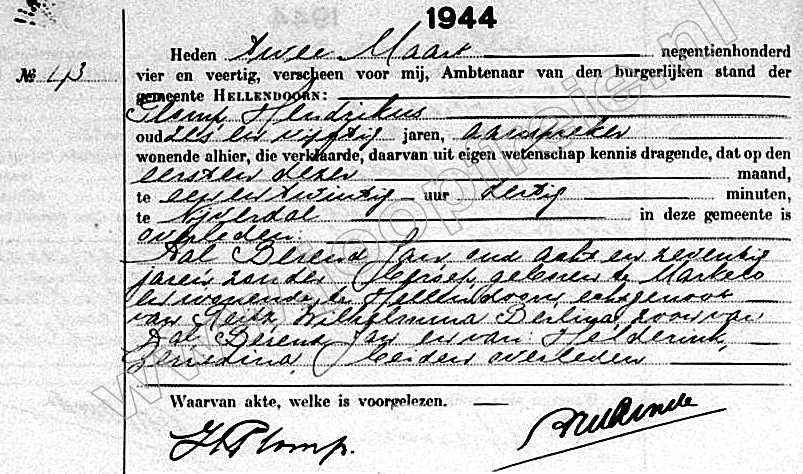 1944
Heden twee Maart negentienhonderd
№ 43
vier en veertig, verscheen voor mij, Ambtenaar van den burgerlijken stand der
gemeente HELLENDOORN:
Plomp, Hendrikus
oud zes en vijftig jaren, aanspreker
wonende alhier, die verklaarde, daarvan uit eigen wetenschap kennis dragende, dat op den
eersten dezer maand,
te een en twintig uur dertig minuten,
te Nijverdal in deze gemeente is
overleden:
Dal Berend Jan oud acht en zeventig
jaren zonder beroep, geboren te Markelo
en wonende te Hellendoorn, echtgenoot
van Wilhelmina Berlina, zoon van
Dal Berend Jan en van Helderink,
Berendina, beiden overleden
Waarvan akte, welke is voorgelezen.
H Plomp.
www.genealogieonline.nl